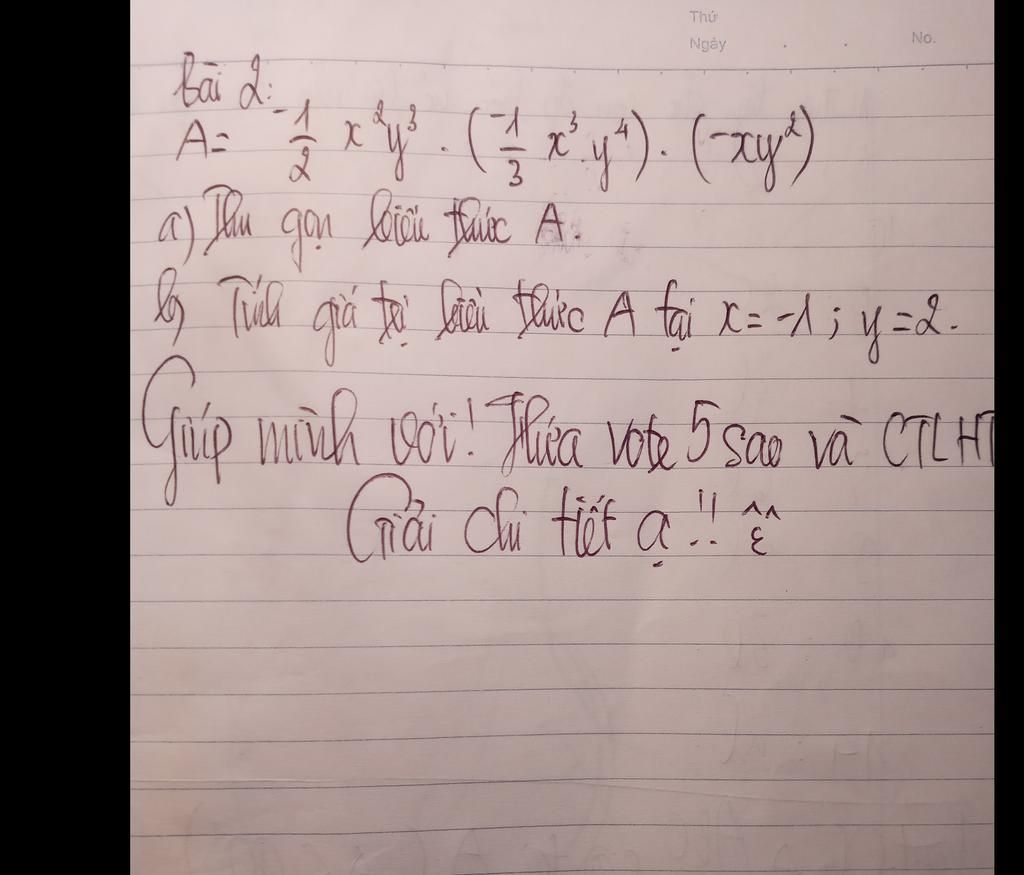 Thứ
Ngày . . No.
Bài 2:
A = -1/2 x²y³ . (-1/3 x³.y⁴) . (-xy²)
a) Thu gọn biểu thức A.
b) Tính giá trị biểu thức A tại x = -1 ; y = 2.
Giúp mình với! Hứa vote 5 sao và CTLHT
Giải chi tiết ạ!!